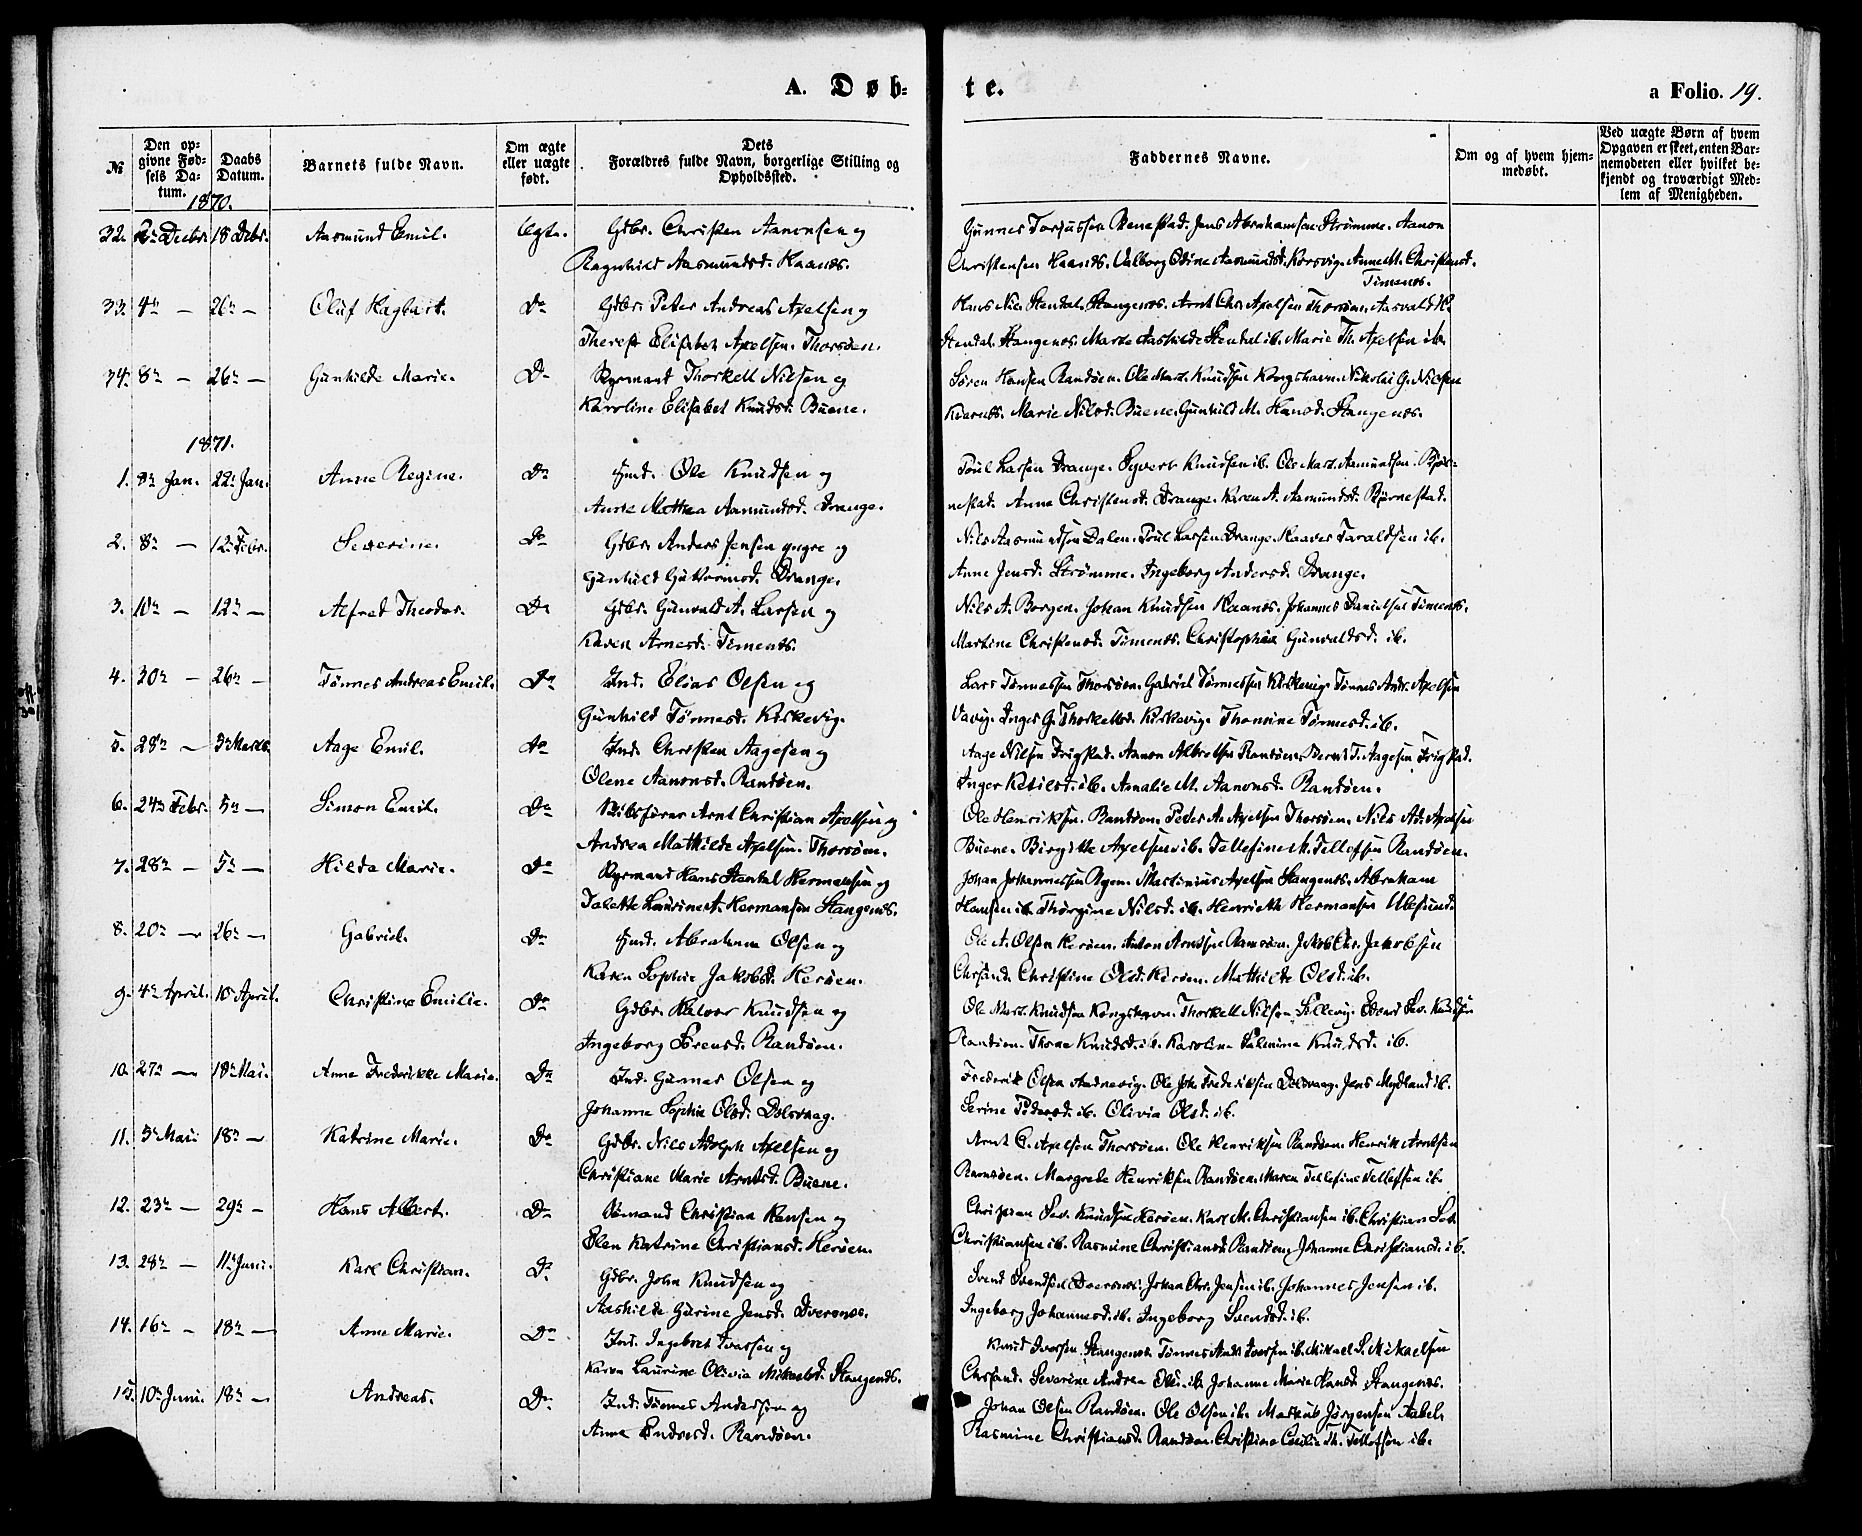 A. Døb-
te.
a Folio. 19.
№
Den op-
givne Fød-
sels Da-
tum.
Daabs
Datum.
Barnets fulde Navn.
Om ægte
eller uægte
født.
Dets
Forældres fulde Navn, borgerlige Stilling og
Opholdssted.
Faddernes Navne.
Om og af hvem hjem-
medøbt.
Ved uægte Børn af hvem
Opgaven er skeet, enten Bar-
nemoderen eller hvilket be-
kjendt og troværdigt Med-
lem af Menigheden.
1870.
32. Decbr. 18 Debr. Aasmund Emil. Ægte. Gdbr. Christen Aanonsen og
Ragnhild Aasmundsd. Kaanes.
Gunnes Torjussen Benestad. Jens Abrahamsen Strømme. Aanon
Christensen Kaanes. Valborg Odine Aasmundsd. Korsvig. Anne M. Christensd.
Timenes.
33. 4de — 26de — Oluf Hagbart. Do Gdbr. Peter Andreas Axelsen og
Therese Elisabet Axelsen. Thorsøen.
Hans Nic. Stendal. Stangenes. Arnt Chr. Axelsen Thorsøen. Aasvald H.
Stendal. Stangenes. Marte Aashilde Stendal ib. Marie Th. Axelsen ib.
34. 8de — 26de — Gunhilde Marie. Do Styrmand Thorkell Nilsen og
Karoline Elisabet Knudsd. Buene.
Søren Hansen Randøen. Ole Mart. Knudsen Kongshavn. Nikolai G. Nielsen
Kvarnes. Marie Nilsd. Buene. Gunhild M. Hansd. Stangenes.
1871.
1. 8de Jan. 22de Jan. Anne Regine. Do Ole Knudsen og
Anne Mathea Aamundsd. Drange.
Poul Larsen Drange. Syvert Knudsen ib. Ole Mart. Aamundsen Bjør-
nestad. Anne Christensd. Drange. Karen A. Aamundsd. Bjørnestad.
2. 8de — 12te Febr. Severine. Do Gdbr. Anders Jensen yngre og
Gunhild Guttormsd. Drange.
Nils Aasmundsen Dalen. Poul Larsen Drange. Haaver Taraldsen ib.
Anne Jensd. Strømme. Ingeborg Andersd. Drange.
3. 10de — 12te — Alfred Theodor. Do Gdbr. Gunvald A. Larsen og
Karen Arnesd. Timenes.
Nils A. Borgen. Johan Knudsen Kaanes. Johannes Danielsen Timenes.
Martine Christensd. Timenes. Christophia Gunvaldsd. ib.
4. 30te — 26de — Tønnes Andreas Emil. Do Ind. Elias Olsen og
Gunhild Tønnesd. Kirkevig.
Lars Tønnessen Thorsøen. Gabriel Tønnessen Kirkevig. Tønnes Andr. Axelsen
Vavig. Inger G. Thorkelsd. Kirkevig. Thomine Tønnesd. ib.
5. 28de — 5te Marts. Aage Emil. Do Ind. Christen Aagesen og
Olene Aanonsd. Randøen.
Aage Nilsen Frigstad. Aanon Albretsen Randøen. Bernt T. Aagesen Frigstad.
Inger Ketilsd. ib. Amalie M. Aanonsd. Randøen.
6. 24de Febr. 5te — Simon Emil. Do Skibsfører Arnt Christian Axelsen og
Andrea Mathilde Axelsen. Thorsøen.
Ole Henriksen. Randøen. Peder A. Axelsen Thorsøen. Nils Ad. Axelsen
Buene. Birgitte Axelsen ib. Tellefine M. Tellefsen Randøen.
7. 28de — 5te — Hilda Marie. Do Styrmand Hans Stendal Hermansen og
Talette Laurine A. Hermansen Stangenes.
Johan Johannessen Ryen. Martinius Axelsen Stangenes. Abraham
Hansen ib. Thorgine Nilsd. ib. Henriette Hermansen Ulesund.
8. 20de — 26de — Gabriel. Do Abraham Olsen og
Karen Sophie Jakobsd. Herøen.
Ole A. Olsen Herøen. Anton Arntsen Ramsøen. Jakob Chr. Jakobsen
Chrsand. Christine Olsd. Herøen. Mathilde Olsd. ib.
9. 4de April. 10 April. Christine Emilie. Do Gdbr. Halvor Knudsen og
Ingeborg Sørensd. Randøen.
Ole Mart. Knudsen Kongshavn. Thorkell Nilsen Sillevig. Edvard Sev. Knudsen
Randøen. Thone Knudsd. ib. Karoline Palmine Knudsd. ib.
10. 27de — 18de Mai. Anne Frederikke Marie. Do Ind. Gunnar Olsen og
Johanne Sophie Olsd. Dolsvaag.
Frederik Olsen Andnevig. Ole Joh. Frederiksen Dolsvaag. Jens Mydland ib.
Serine Pedersd. ib. Olivia Olsd. ib.
11. 5te Mai 18de — Katrine Marie. Do Gdbr. Nils Adolph Axelsen og
Christiane Marie Arntsd. Buene.
Arnt C. Axelsen Thorsøen. Ole Henriksen Randøen. Henrik Arntsen
Ramsøen. Margrete Henriksen Randøen. Maren Tellefine Tellefsen ib.
12. 23de — 29de — Hans Albert. Do Sømand Christian Hansen og
Elen Katrine Christiansd. Herøen.
Christian Sev. Knudsen Herøen. Karl M. Christiansen ib. Christian Sev.
Christiansen ib. Rasmine Christiansd. Randøen. Johanne Christiansd. ib.
13. 28de — 11te Juni. Karl Christian. Do Gdbr. John Knudsen og
Aashilde Gurine Jensd. Dversnes.
Svend Svendsen Dversnes. Johan Chr. Jensen ib. Johannes Jensen ib.
Ingeborg Johannesd. ib. Ingeborg Svendsd. ib.
14. 16de — 18de — Anne Marie. Do Ind. Ingebret Iversen og
Karen Laurine Olivia Mikaelsd. Stangenes.
Knud Iversen. Stangenes. Tønnes Andr. Iversen ib. Mikael S. Mikaelsen
Chrsand. Severine Andrea Olsd. ib. Johanne Marie Hansd. Stangenes.
15. 10de Juni. 18de — Andreas. Do Ind. Tønnes Andersen og
Anne Endresd. Randøen.
Johan Olsen Randøen. Ole Olsen ib. Markus Jørgensen Aabel.
Rasmine Christiansd. Randøen. Christine Cecilie Th. Tellefsen ib.